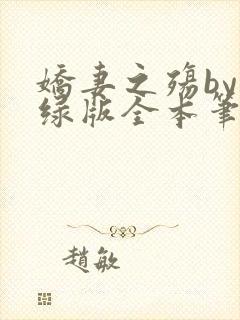 嬌妻之殤by
绿版全本筆
趙敏